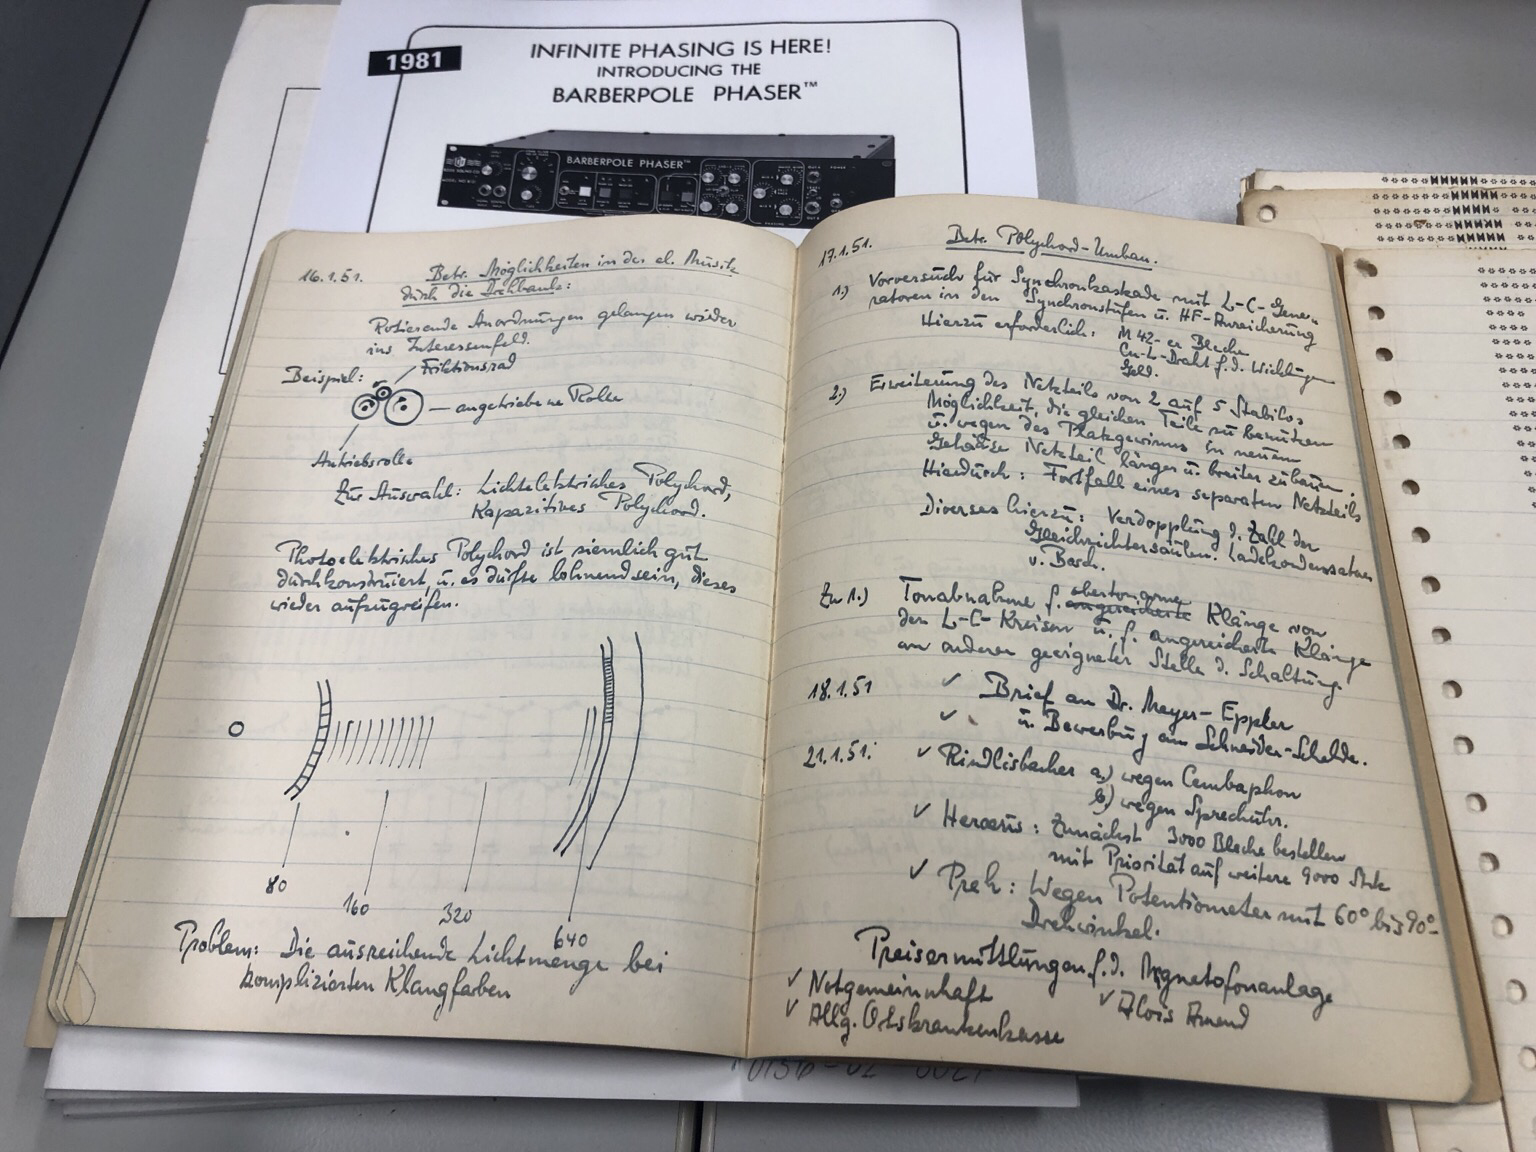 1981
INFINITE PHASING IS HERE!
INTRODUCING THE
BARBERPOLE PHASER™
BARBERPOLE PHASER™
16.1.51.
Betr. Möglichkeiten in der el. Musik
durch die Drehbank:
Rotierende Anordnungen gelangen wieder
ins Interessenfeld.
Beispiel:
Friktionsrad
angetriebene Rolle
Antriebsrolle
Zur Auswahl: Lichtelektrisches Polychord,
Kapazitives Polychord.
Photoelektrisches Polychord ist ziemlich gut
durchkonstruiert, u. es dürfte lohnend sein, dieses
wieder aufzugreifen.
80
160
320
640
Problem: Die ausreichende Lichtmenge bei
komplizierten Klangfarben
17.1.51.
Betr. Polychord-Umbau.
1.) Vorversuch für Synchronkaskade mit L-C-Gene-
ratoren in den Synchronstufen u. HF-Anreicherung
Hierzu erforderlich: M 42-er Bleche
Cu-L-Draht f. d. Wicklungen
Geld.
2.) Erweiterung des Netzteils von 2 auf 5 Stabilos
Möglichkeit, die gleichen Teile zu benutzen
u. wegen des Platzgewinns in neuem
Gehäuse Netzteil länger u. breiter zu bauen.
Hierdurch: Fortfall eines separaten Netzteils
Diverses hierzu: Verdopplung d. Zahl der
Gleichrichtersäulen. Ladekondensatoren
v. Bosch.
Zu 1.) Tonabnahme f. obertonarme Klänge von
den L-C-Kreisen u. f. angereicherte Klänge
an anderer geeigneter Stelle d. Schaltung.
18.1.51 ✓ Brief an Dr. Meyer-Eppler
✓ u. Bewerbung an Schneider-Schelde.
21.1.51: ✓ Rindlisbacher a.) wegen Cembaphon
b) wegen Sprechuhr.
✓ Heraeus: Zunächst 3000 Bleche bestellen
mit Priorität auf weitere 9000 Stck
✓ Preh: Wegen Potentiometer mit 60° bis 90°-
Drehwinkel.
Preisermittlungen f. d. Magnetofonanlage
✓ Notgemeinschaft
✓ Alois Amend
✓ Allg. Ortskrankenkasse